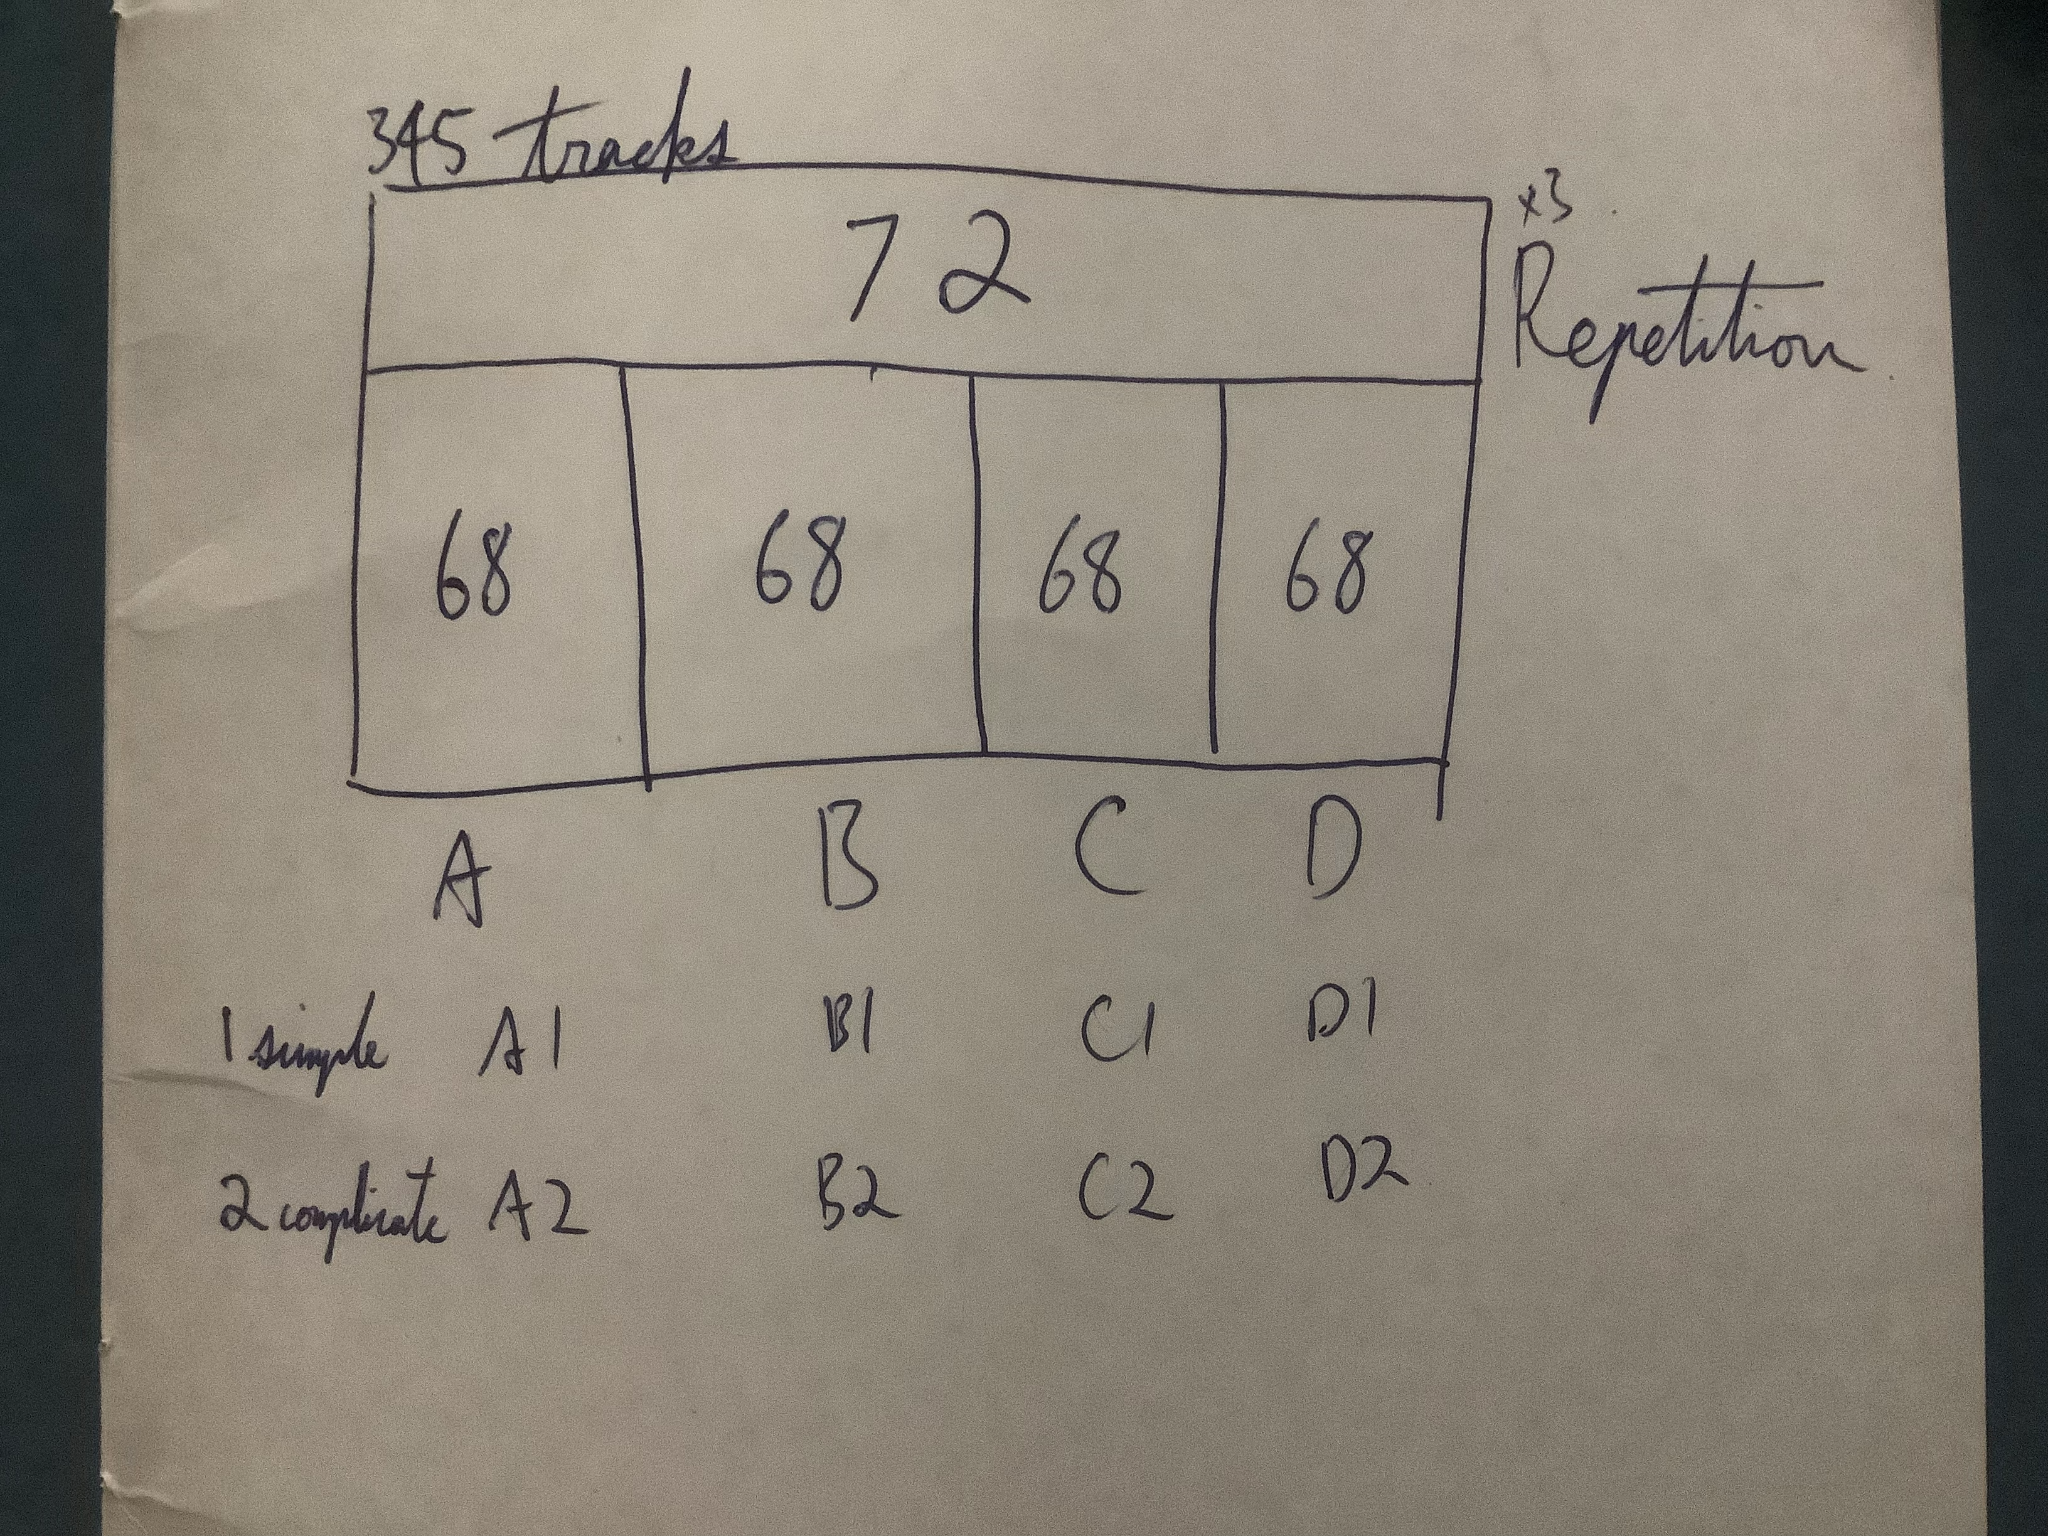 345 tracks
x3
72
Repetition
68 68 68 68
A B C D
1 simple A1 B1 C1 D1
2 complicate A2 B2 C2 D2